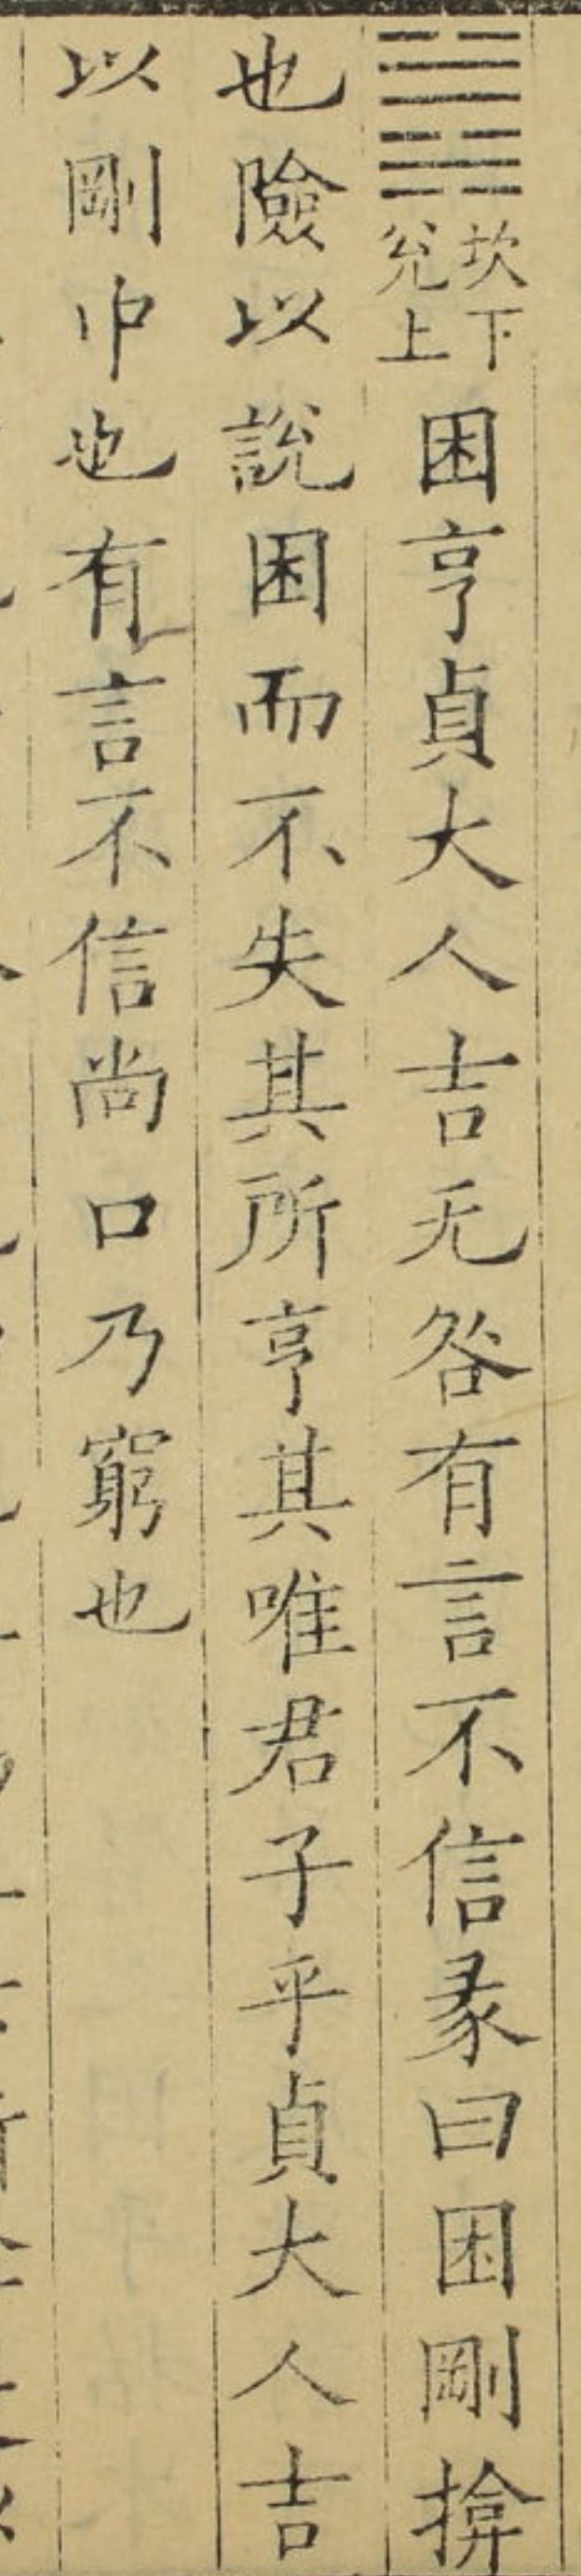 坎下兌上困亨貞大人吉无咎有言不信彖曰困剛揜
也險以說困而不失其所亨其唯君子乎貞大人吉
以剛中也有言不信尚口乃窮也